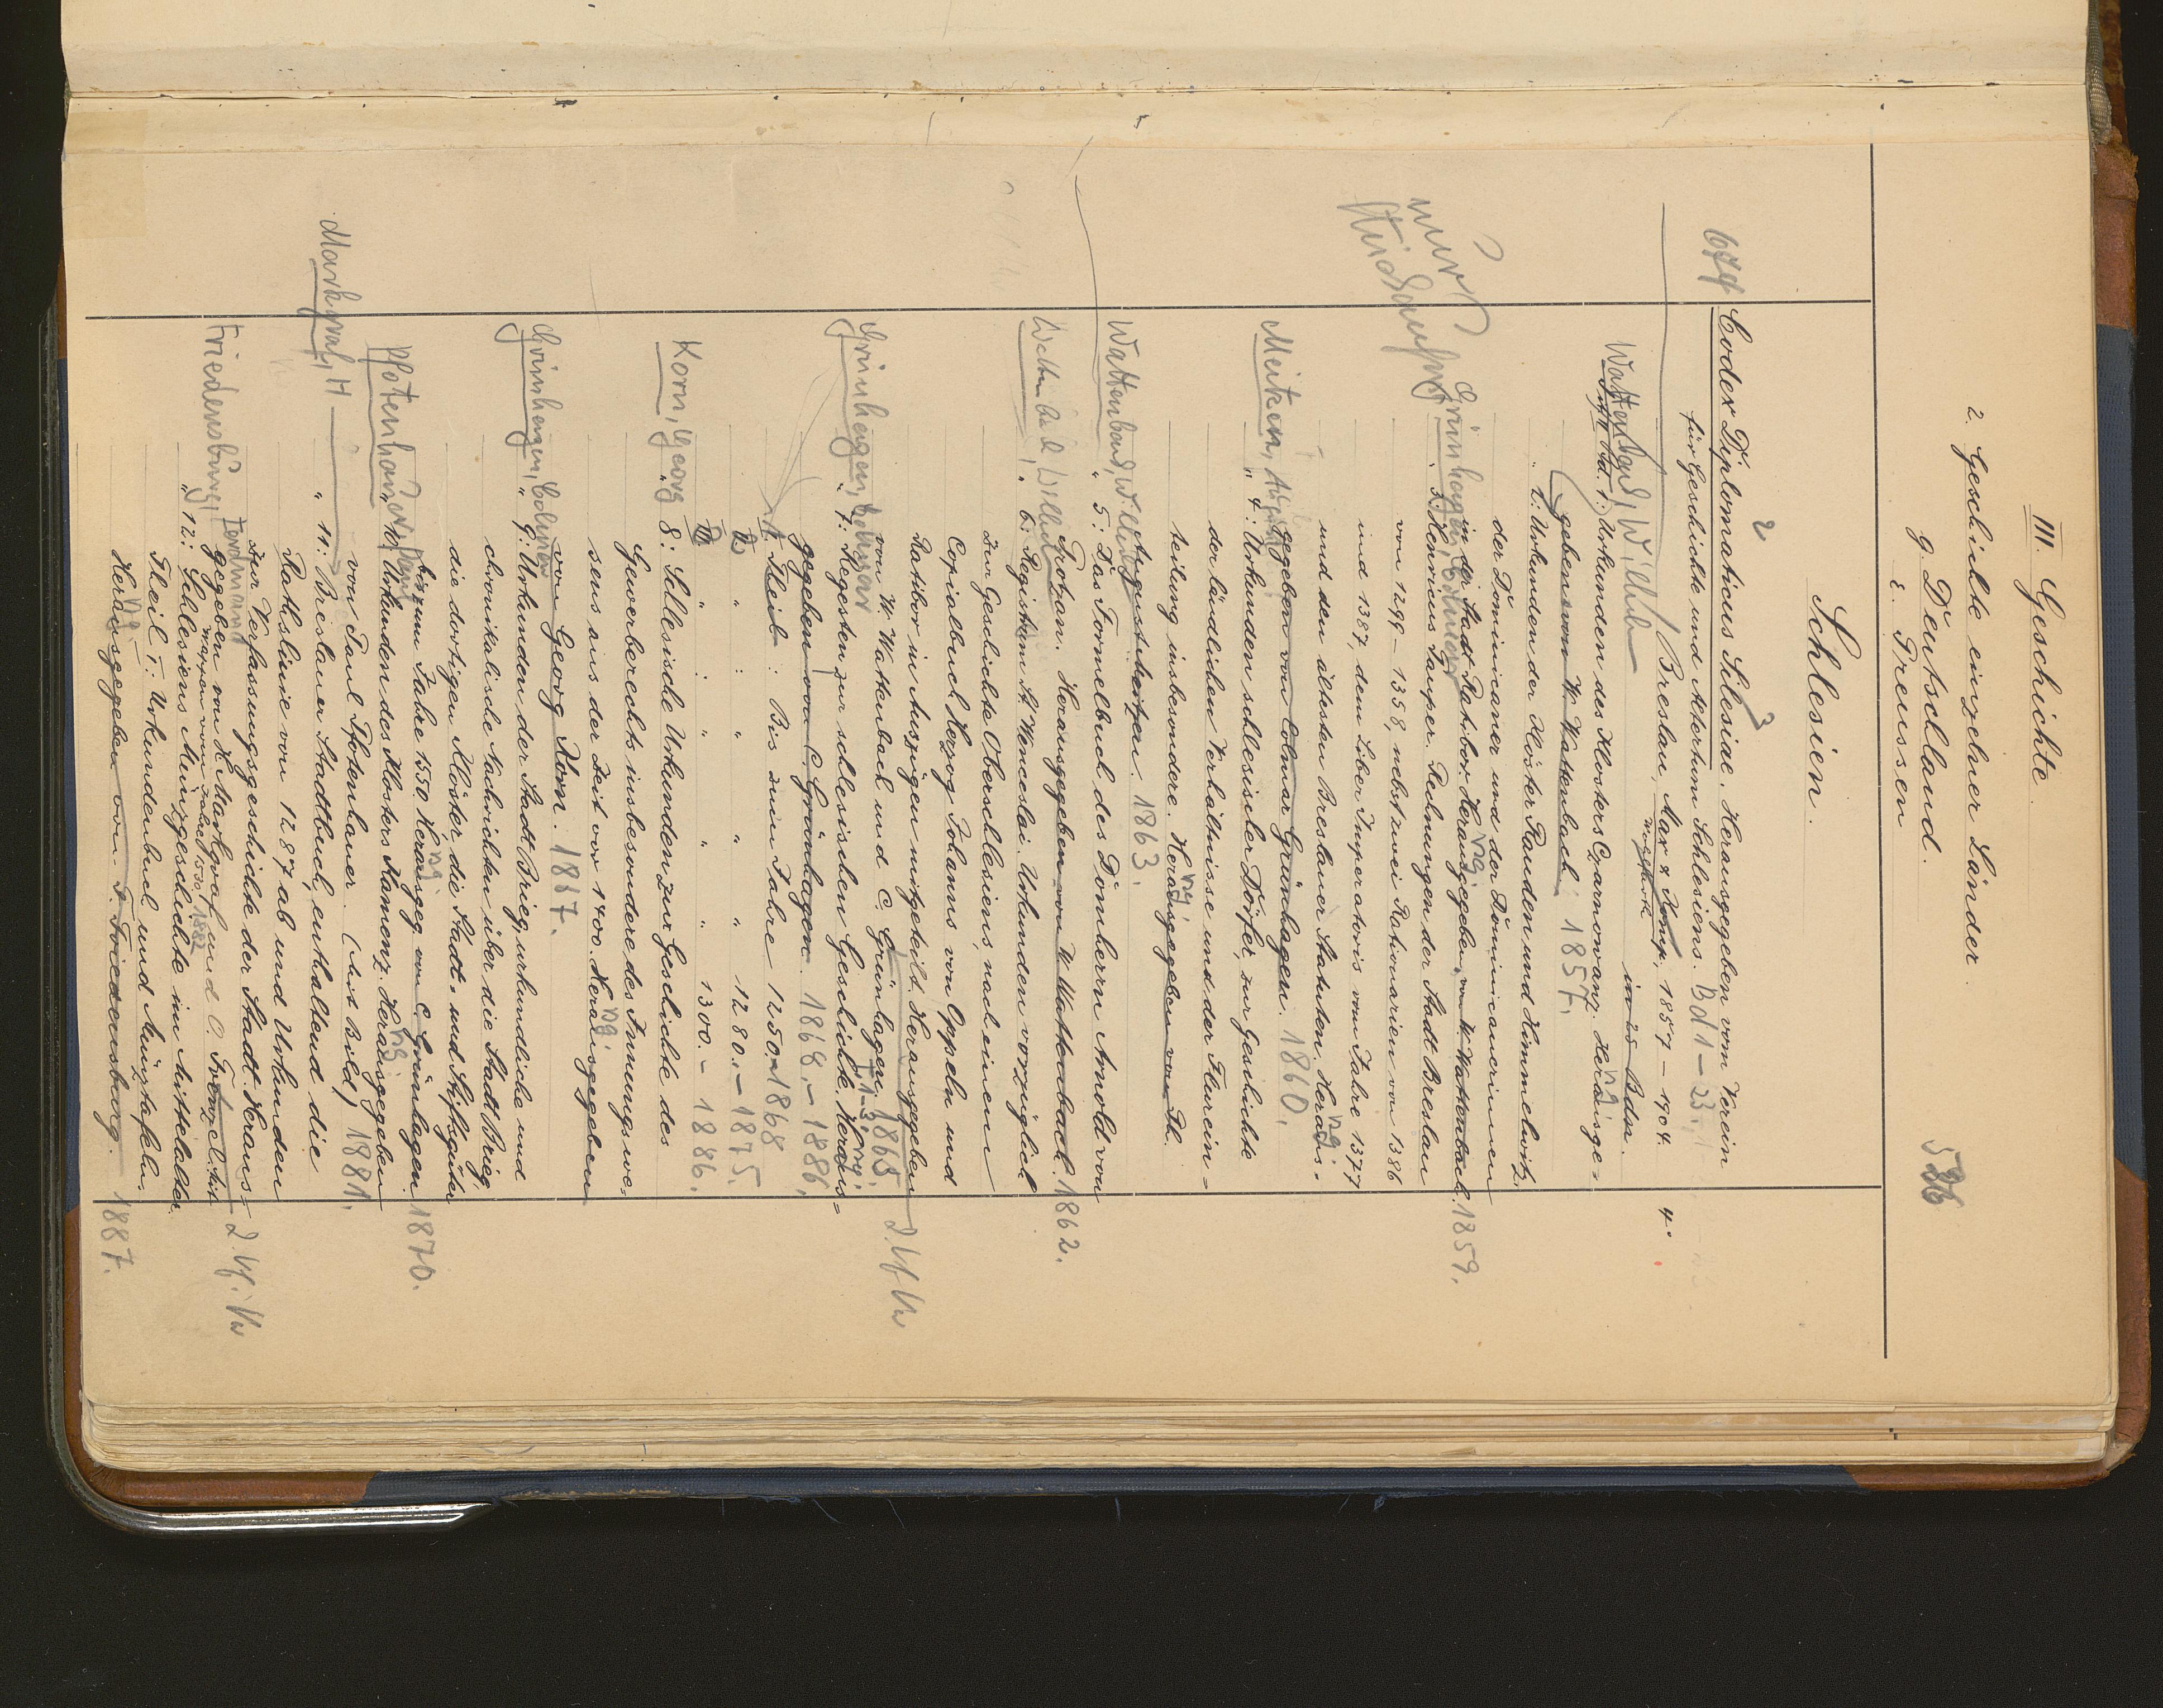 III. Geschichte.
2. Geschichte einzelner Länder.
g. Deutschland.
ε. Preussen
536
Schlesien.
674
Codex Diplomaticus Silesiae. Herausgegeben vom Verein
für Geschichte und Alterthum Schlesiens. Bd 1–23.
Breslau, Max & Komp, 1857–1904.
4°
Wattenbach, Wilhelm
in 23 Bdn.
Bd. 1: Urkunden des Klosters Czarnowanz. Herausge-
geben von W. Wattenbach 1857.
" 2: Urkunden der Klöster Rauden und Himmelwitz,
der Dominicaner und der Dominicanerinnen
in der Stadt Ratibor. Herausgegeben von W. Wattenbach. 1859.
Grünhagen, Colmar
" 3: Henricus Pauper. Rechnungen der Stadt Breslau
von 1299–1358, nebst zwei Rationarien von 1386
und 1387, dem Liber Imperatoris vom Jahre 1377
und den ältesten Breslauer Statuten. Heraus-
gegeben von Colmar Grünhagen. 1860.
Meitzen, August
" 4: Urkunden schlesischer Dörfer, zur Geschichte
der ländlichen Verhältnisse und der Flurein-
teilung insbesondere. Herausgegeben von
August Meitzen. 1863.
Wattenbach, Wilh
" 5: Das Formelbuch des Domherrn Arnold von
Protzan. Herausgegeben von W. Wattenbach. 1862.
Wattenbach, Wilhelm
" 6: Registrum St. Wenceslai. Urkunden vorzüglich
zur Geschichte Oberschlesiens, nach einem
Copialbuch Herzog Johanns von Oppeln und
Ratibor in Auszügen mitgeteilt. Herausgegeben
von W. Wattenbach und C. Grünhagen. 1865.
2. Vf. Vw
Grünhagen, Colmar
" 7: Regesten zur schlesischen Geschichte. Heraus-
gegeben von C. Grünhagen. 1868.–1886.
1. Theil: Bis zum Jahre 1250. 1868
" : " " " 1280.–1875.
" : " " " 1300.–1886.
Korn, Georg
" 8: Schlesische Urkunden zur Geschichte des
Gewerberechts insbesondere des Innungswe-
sens aus der Zeit vor 1400. Herausgegeben
von Georg Korn. 1867.
Grünhagen, Colmar
" 9: Urkunden der Stadt Brieg, urkundliche und
chronikalische Nachrichten über die Stadt Brieg,
die dortigen Klöster, die Stadt- und Stiftsgüter
bis zum Jahre 1550 Herausgeg von C. Grünhagen. 1870.
Pfotenhauer, Paul
" 10: Urkunden des Klosters Kamenz. Herausgegeben
von Paul Pfotenhauer. (Mit Bild) 1881.
Markgraf, H
" 11: Breslauer Stadtbuch, enthaltend die
Rathslinie von 1287 ab und Urkunden
zur Verfassungsgeschichte der Stadt. Heraus-
gegeben von H. Markgraf und O. Frenzel. 1882
2. Vf. Vw
Friedensburg, Ferdinand
" 12: Schlesiens Münzgeschichte im Mittelalter.
Theil 1: Urkundenbuch und Münztafeln.
Herausgegeben von F. Friedensburg. 1887.